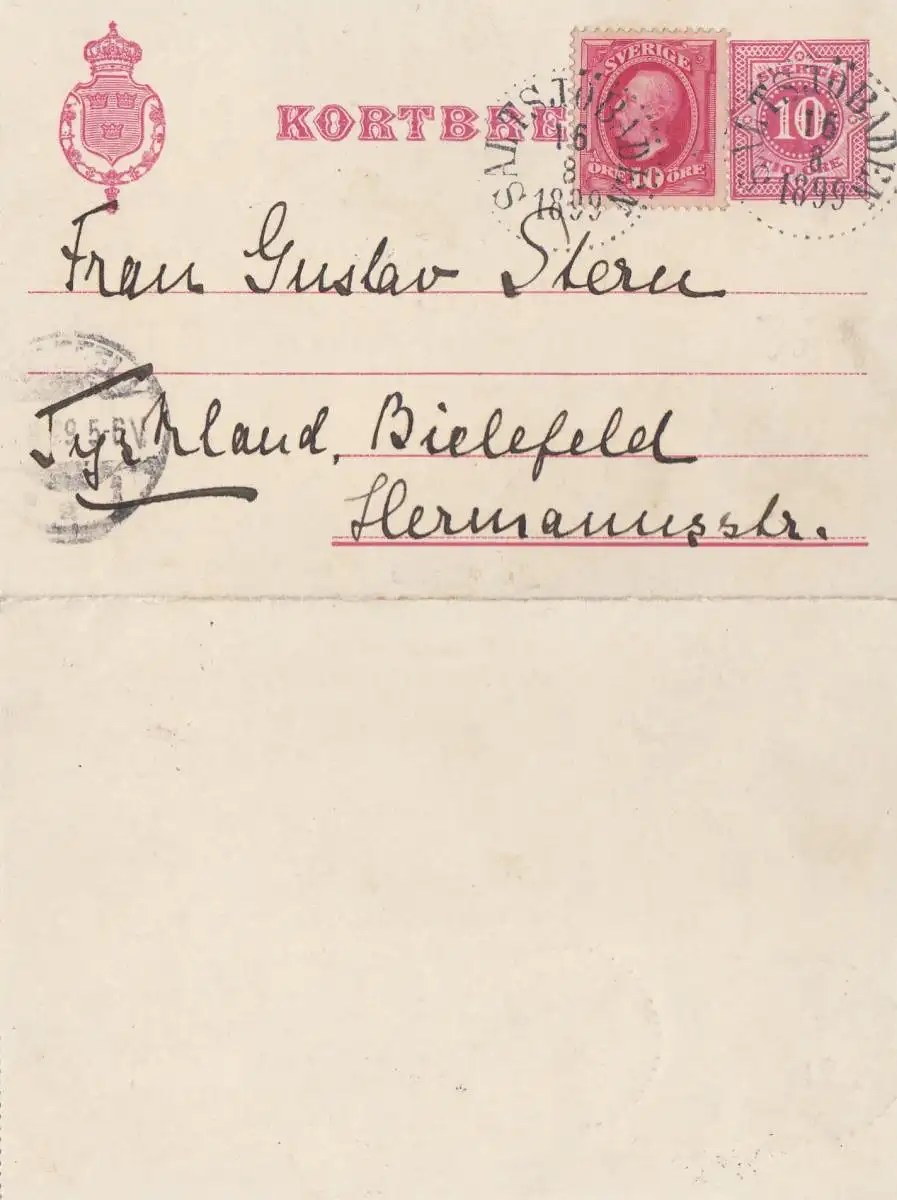 KORTBRE
SVERIGE
ÖRE 10 ÖRE
10
SALTSJÖBADEN
16
8
1899
SALTSJÖBADEN
16
8
1899
Frau Gustav Stern
5-6V
1
Tyskland, Bielefeld
Hermannsstr.